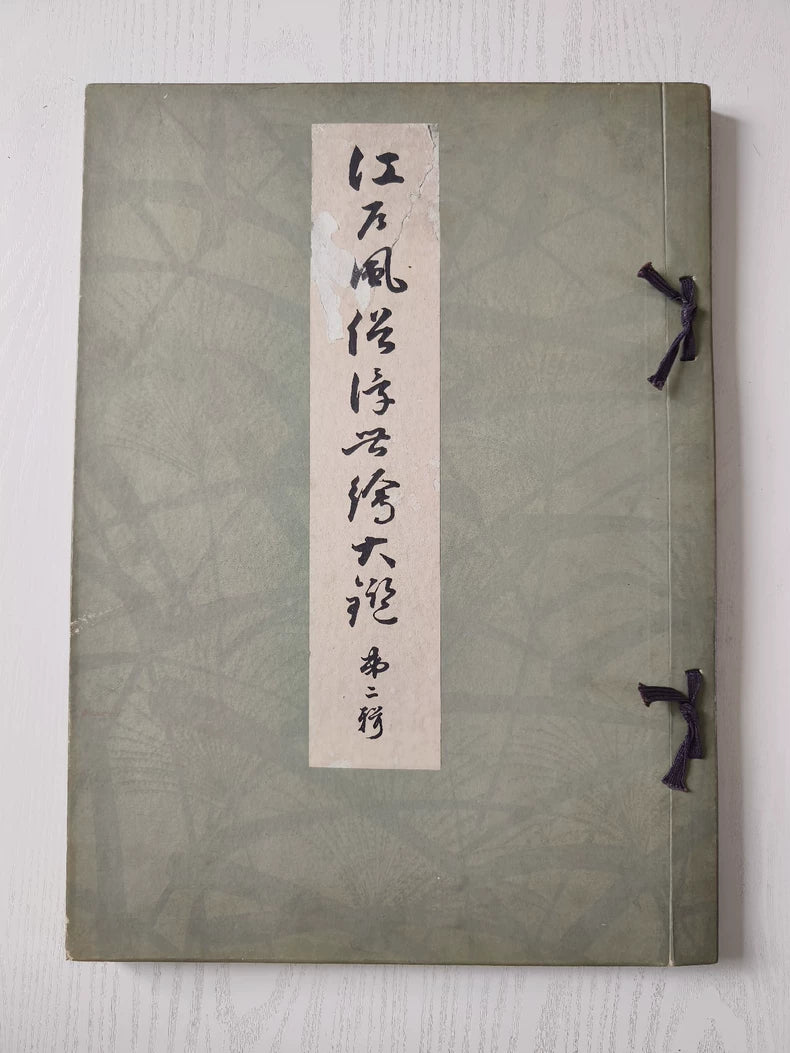 江戸風俗浮世繪大鑑 第二輯